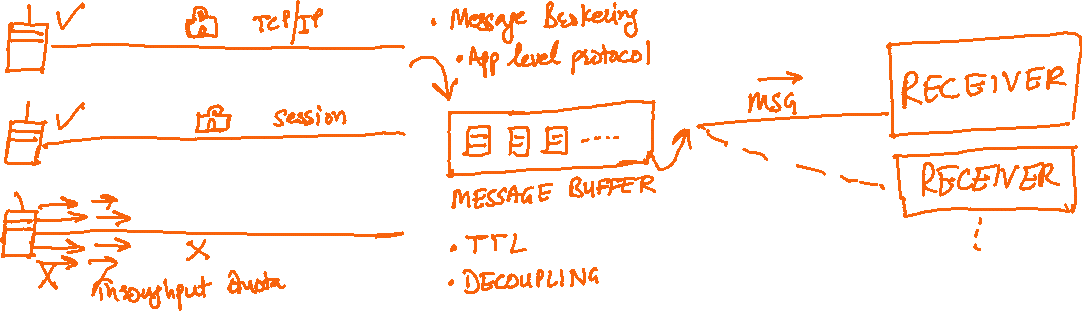 TCP/IP
Session
Throughput Quota
• Message Brokering
• App level protocol
MESSAGE BUFFER
• TTL
• DECOUPLING
MSG
RECEIVER
RECEIVER